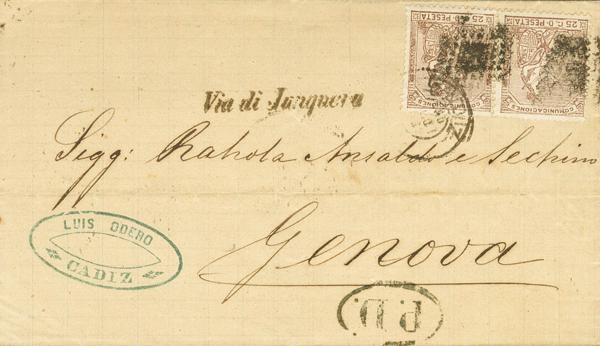 25 C. D PESETA
25 C. D PESETA
COMUNICACIONES
COMUNICACIONES
Via di Junquera
Sigg: Rahola Ansaldo e Sechino
Genova
LUIS ODERO
CADIZ
P.D.